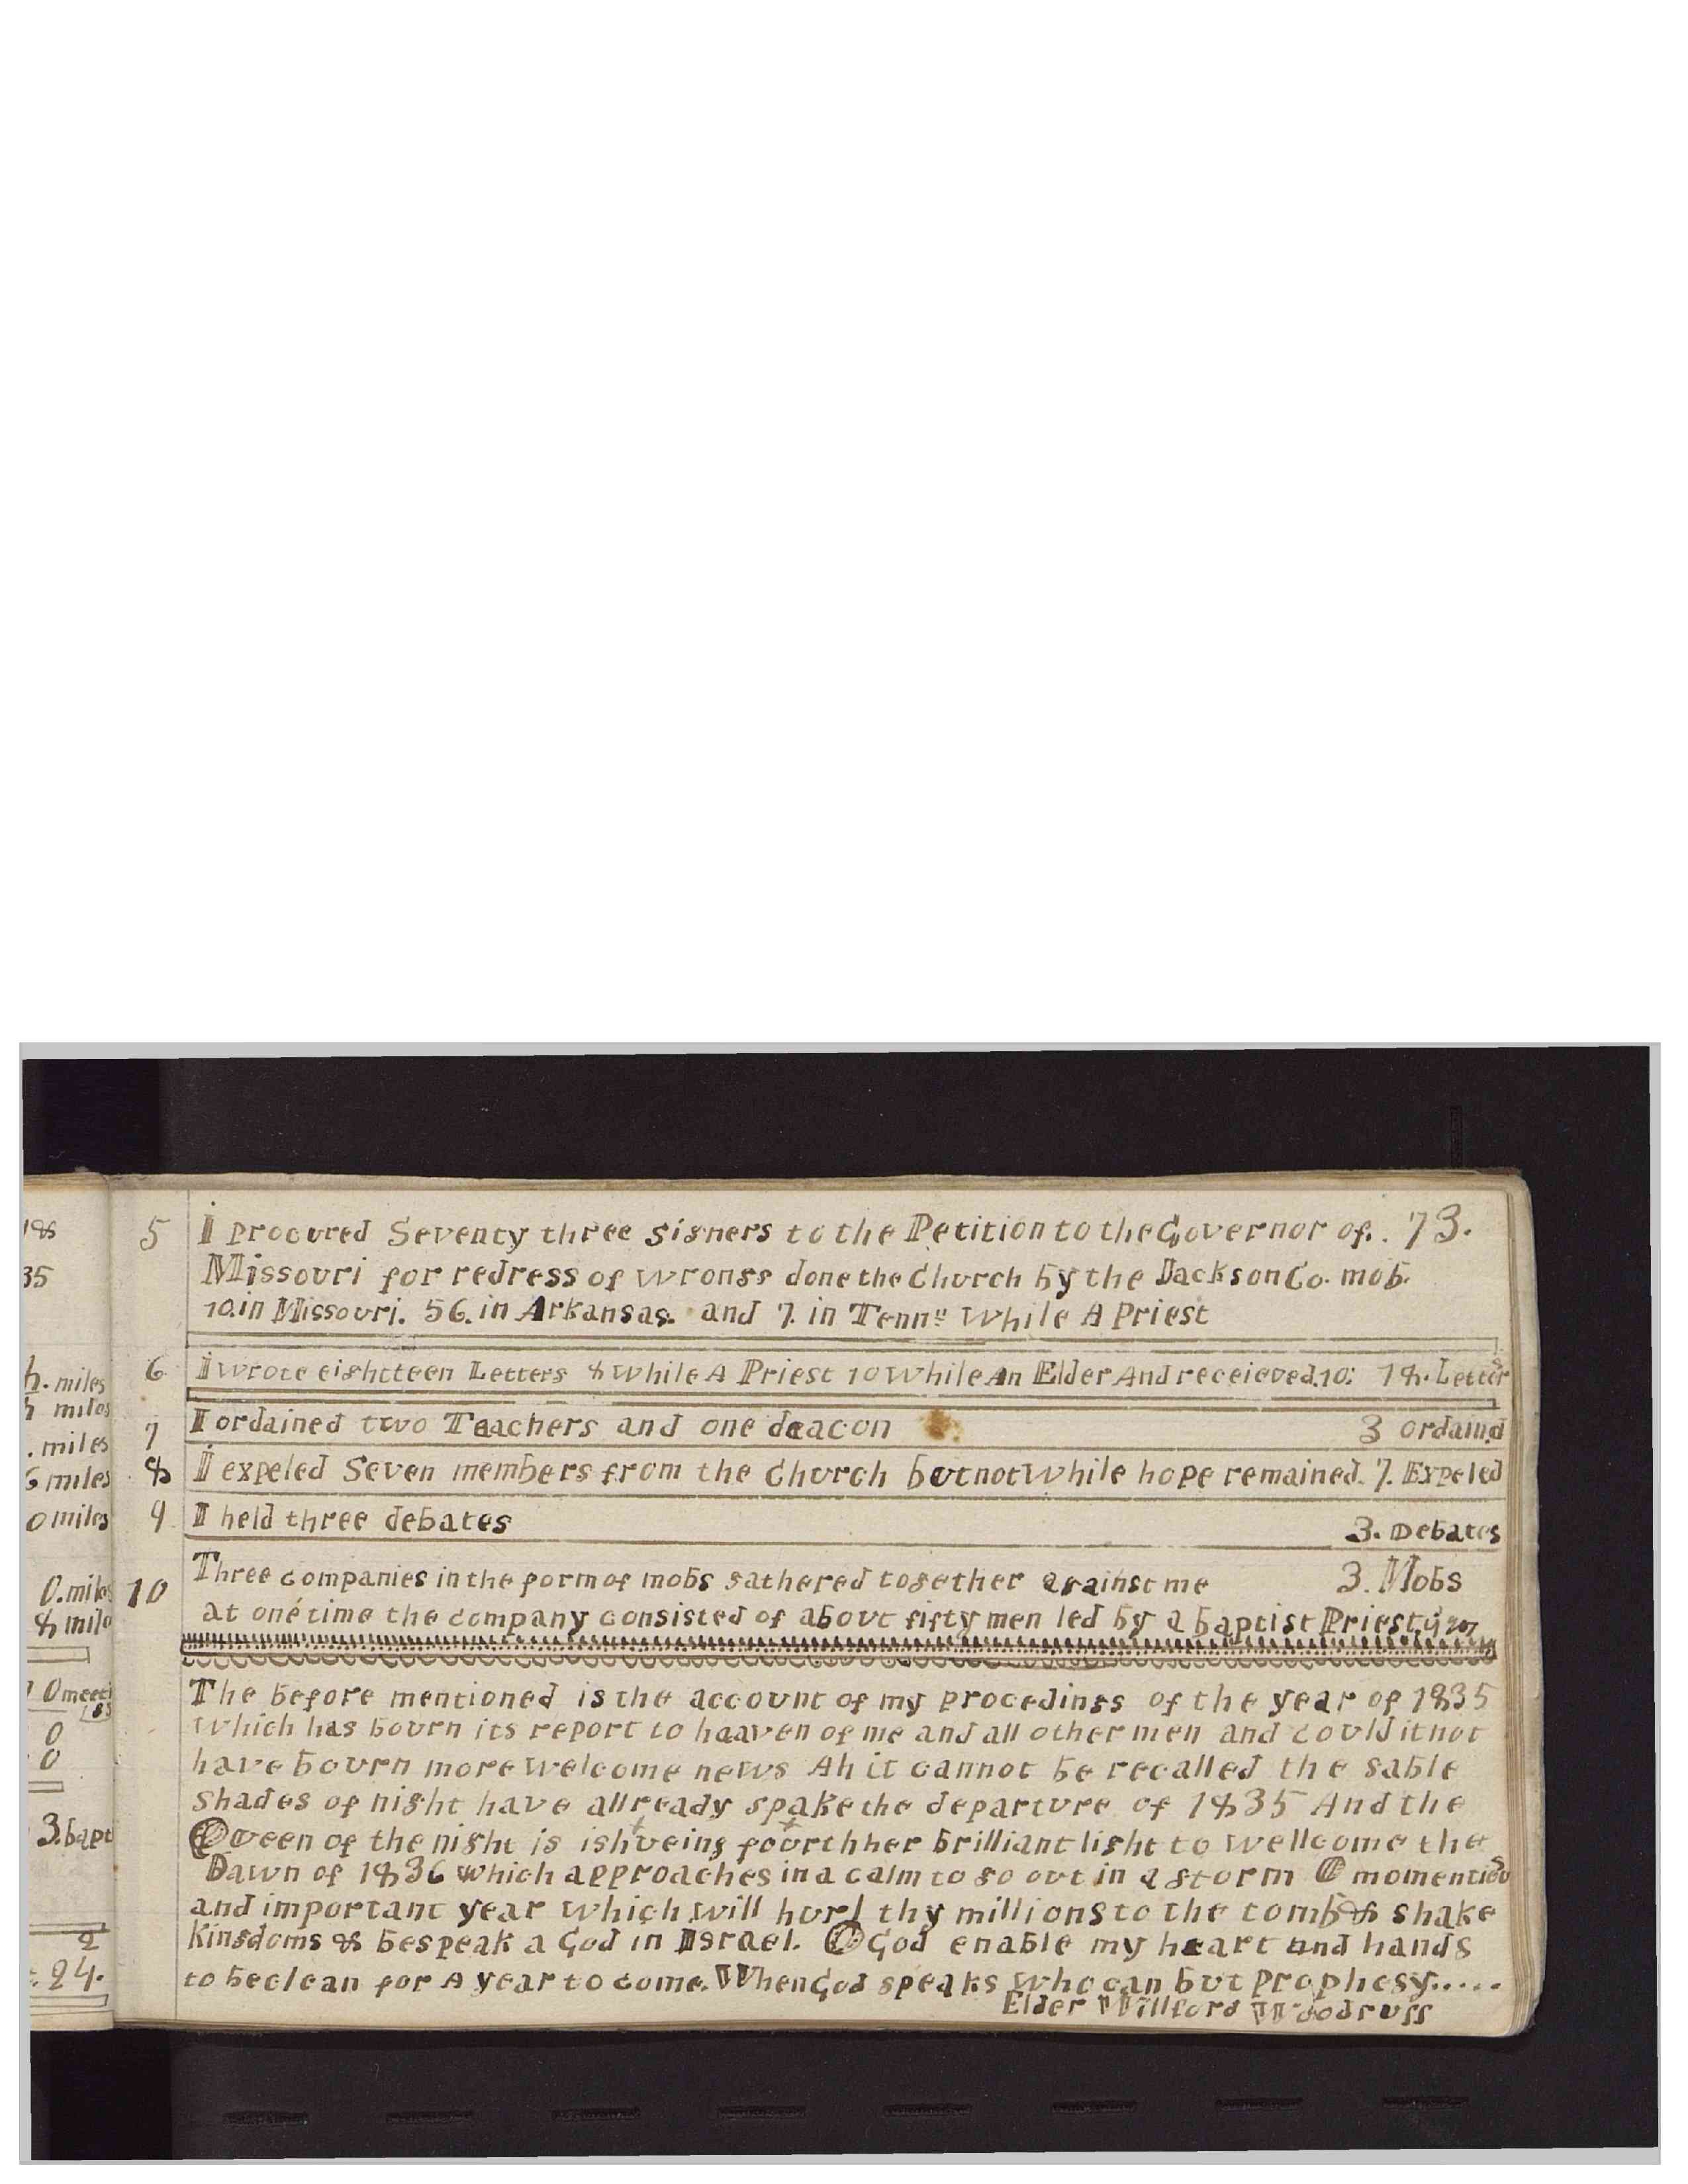 18
35
5 I procured Seventy three signers to the Petition to the Governor of. . 73.
Missouri for redress of wrongs done the Church by the Jackson Co. mob.
10. in Missouri. 56. in Arkansas. and 7. in Tenn. While A Priest
miles
6 I wrote eightteen Letters 8 while A Priest 10 while An Elder And receieved. 10: 18. Letters
miles
7 I ordained two Teachers and one deacon 3 ordaind
. miles
8 I expeled Seven members from the Church but not while hope remained. 7. Expeled
6 miles
9 I held three debates 3. Debates
0 miles
10 Three companies in the form of mobs gathered together against me 3. Mobs
0. miles
at one time the company consisted of about fifty men led by a baptist Priest
8 mile
0 meeti
0
0
3. bapt
2
24.
The before mentioned is the account of my procedings of the year of 1835
which has bourn its report to heaven of me and all other men and could it not
have bourn more welcome news Ah it cannot be recalled the sable
shades of night have allready spake the departure of 1835 And the
Queen of the night is ishueing fourth her brilliant light to wellcome the
Dawn of 1836 which approaches in a calm to go out in a storm O momentious
and important year which will hurl thy millions to the tomb & shake
kingdoms & bespeak a God in Israel. O God enable my heart and hands
to be clean for A year to come. When God speaks who can but prophesy.....
Elder Willford Woodruff